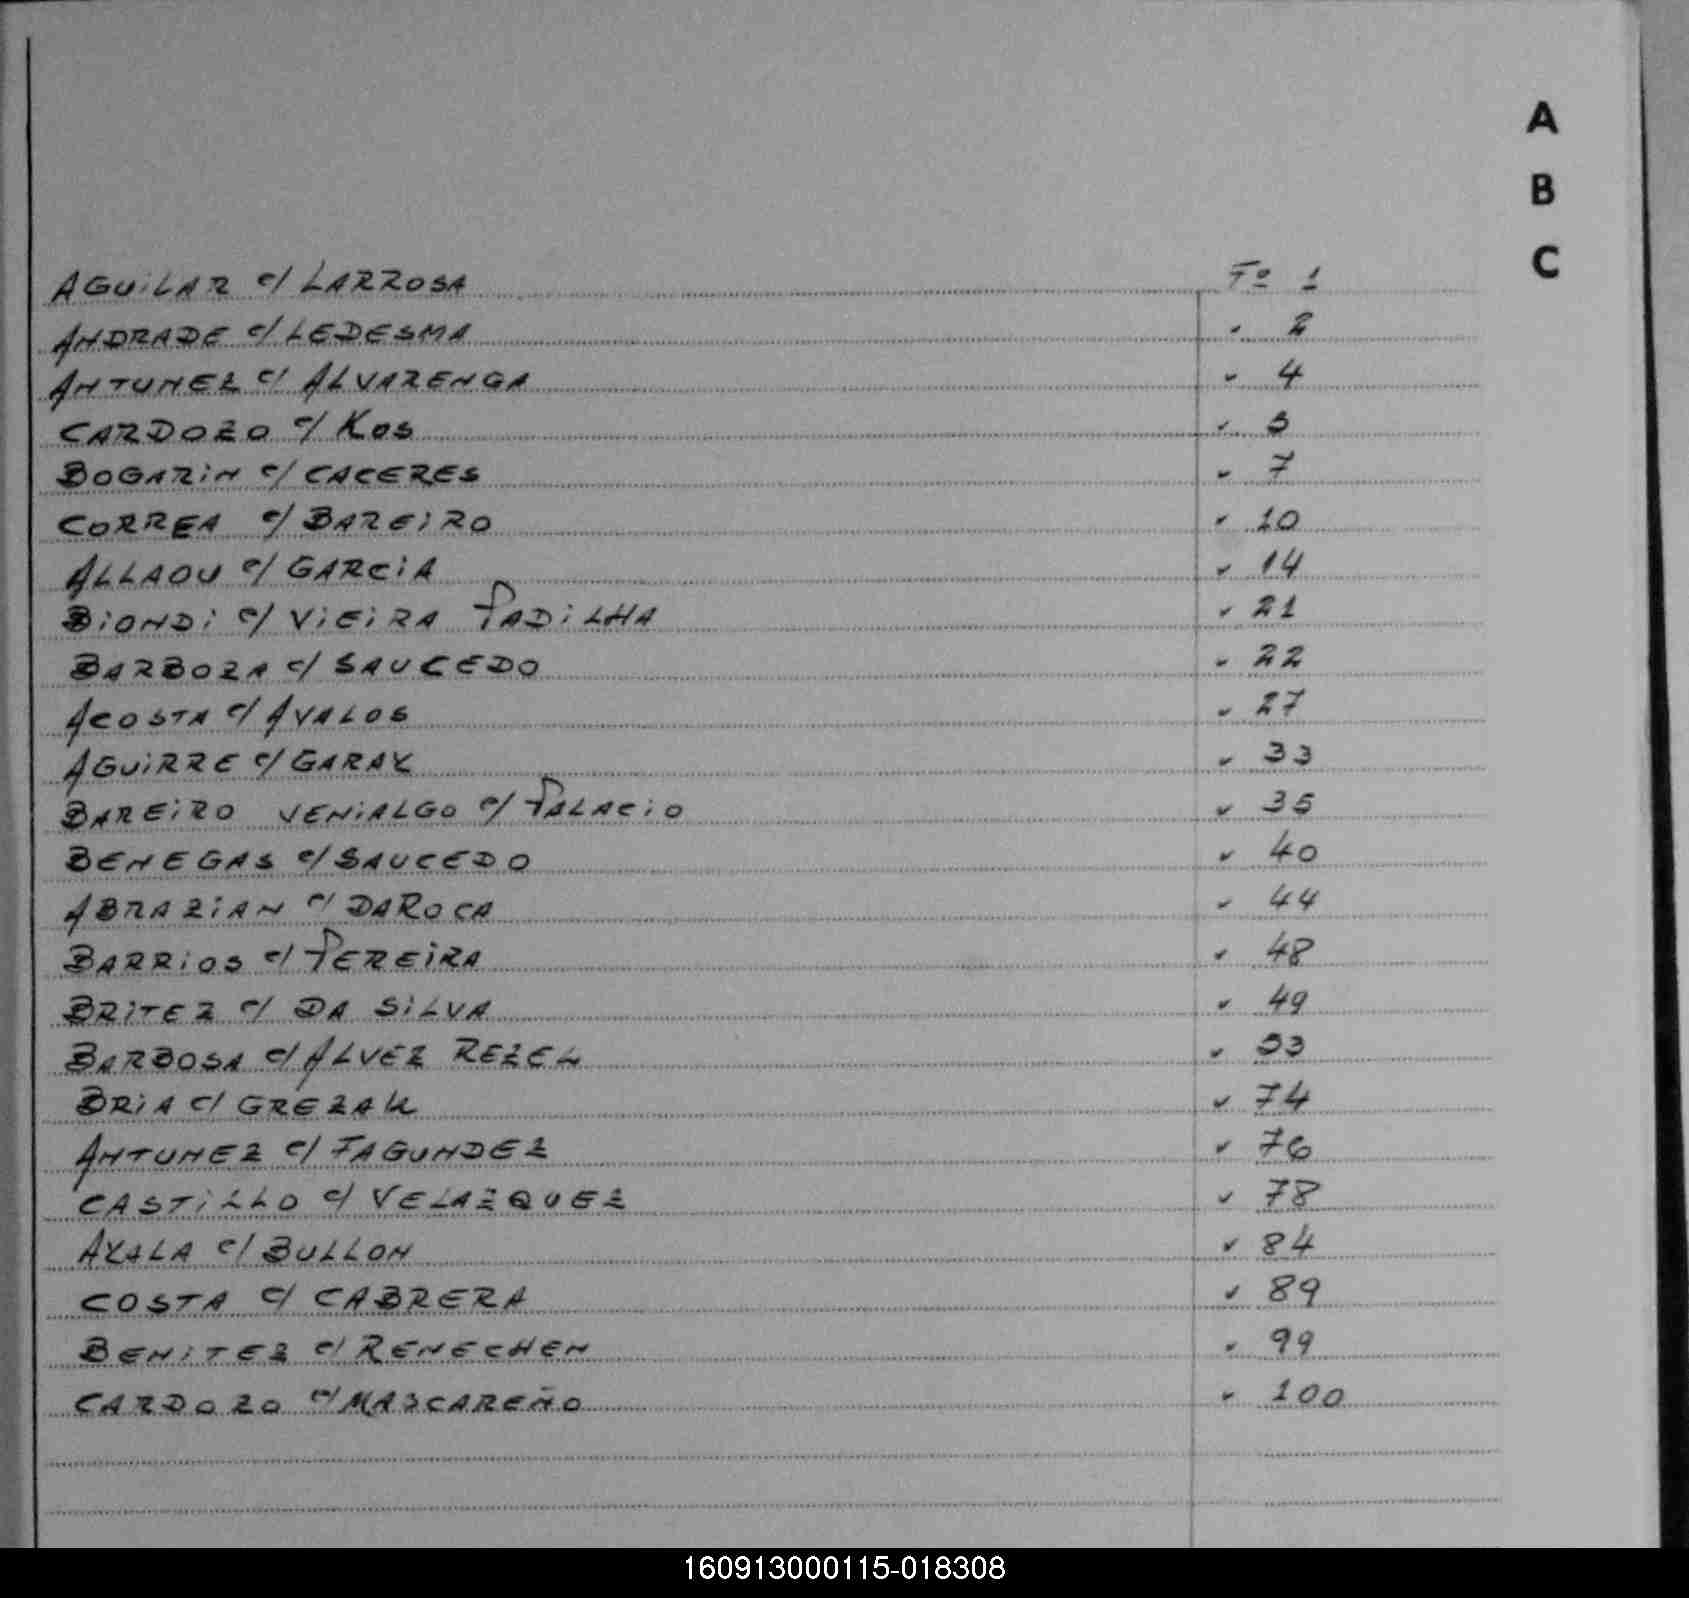 A
B
C
AGUILAR c/ LARROSA Fº 1
ANDRADE c/ LEDESMA " 2
ANTUNEZ c/ ALVARENGA " 4
CARDOZO c/ KOS " 5
BOGARIN c/ CACERES " 7
CORREA c/ BAREIRO " 10
ALLAOU c/ GARCIA " 14
BIONDI c/ VIEIRA PADILHA " 21
BARBOZA c/ SAUCEDO " 22
ACOSTA c/ AVALOS " 27
AGUIRRE c/ GARAY " 33
BAREIRO VENIALGO c/ PALACIO " 35
BENEGAS c/ SAUCEDO " 40
ABRAZIAN c/ DAROCA " 44
BARRIOS c/ PEREIRA " 48
BRITEZ c/ DA SILVA " 49
BARBOSA c/ ALVEZ " 53
BRIA c/ GREZAK " 74
ANTUNEZ c/ FAGUNDEZ " 76
CASTILLO c/ VELAZQUEZ " 78
AYALA c/ BULLON " 84
COSTA c/ CABRERA " 89
BENITEZ c/ RENECHEN " 99
CARDOZO c/ MASCAREÑO " 100
160913000115-018308